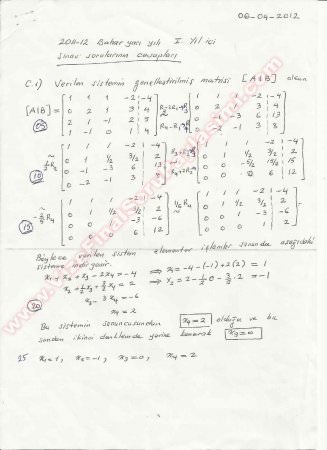 06-04-2012
2011-12 Bahar yarı yılı I. Yıl içi
Sınav sorularının cevapları
C.1) Verilen sistemin genelleştirilmiş matrisi [A|B] olsun
[A|B] =
1 1 1 -2 -4
0 2 1 3 4
2 1 -1 2 5
1 -1 0 1 4
05
1 1 1 -2 -4
0 2 1 3 4
0 -1 -3 6 13
0 -2 -1 3 8
10
1 1 1 -2 -4
0 1 1/2 3/2 2
0 -1 -3 6 13
0 -2 -1 3 8
1 1 1 -2 -4
0 1 1/2 3/2 2
0 0 -5/2 15/2 15
0 0 0 6 12
15
1 1 1 -2 -4
0 1 1/2 3/2 2
0 0 1 -3 -6
1 1 1 -2 -4
0 1 1/2 3/2 2
0 0 1 -3 -6
0 0 0 1 2
Böylece verilen sistem elementer işlemler sonunda aşağıdaki
sisteme indirgenir.
x₁ + x₂ + x₃ - 2x₄ = -4 ⇒ x₁ = -4 - (-1) + 2(2) = 1
x₂ + 1/2 x₃ + 3/2 x₄ = 2 ⇒ x₂ = 2 - 1/2 · 0 - 3/2 · 2 = -1
x₃ - 3x₄ = -6
x₄ = 2
20
Bu sistemin sonuncusundan x₄ = 2 olduğu ve bu
sondan ikinci denklemde yerine konarak x₃ = 0
25 x₁ = 1, x₂ = -1, x₃ = 0, x₄ = 2